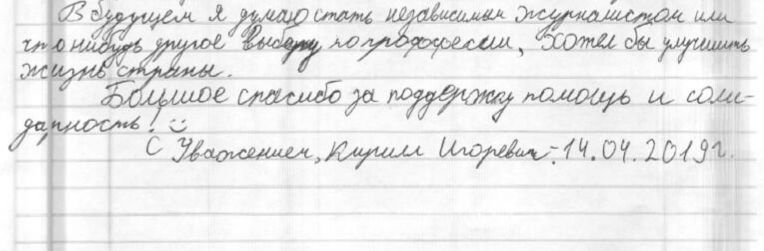 В будущем я думаю стать независимым журналистом или
что нибудь другое выберу по профессии, хотел бы улучшить
жизнь страны.
Большое спасибо за поддержку помощь и соли-
дарность! :)
С Уважением, Кирилл Игоревич. 14.04.2019г.